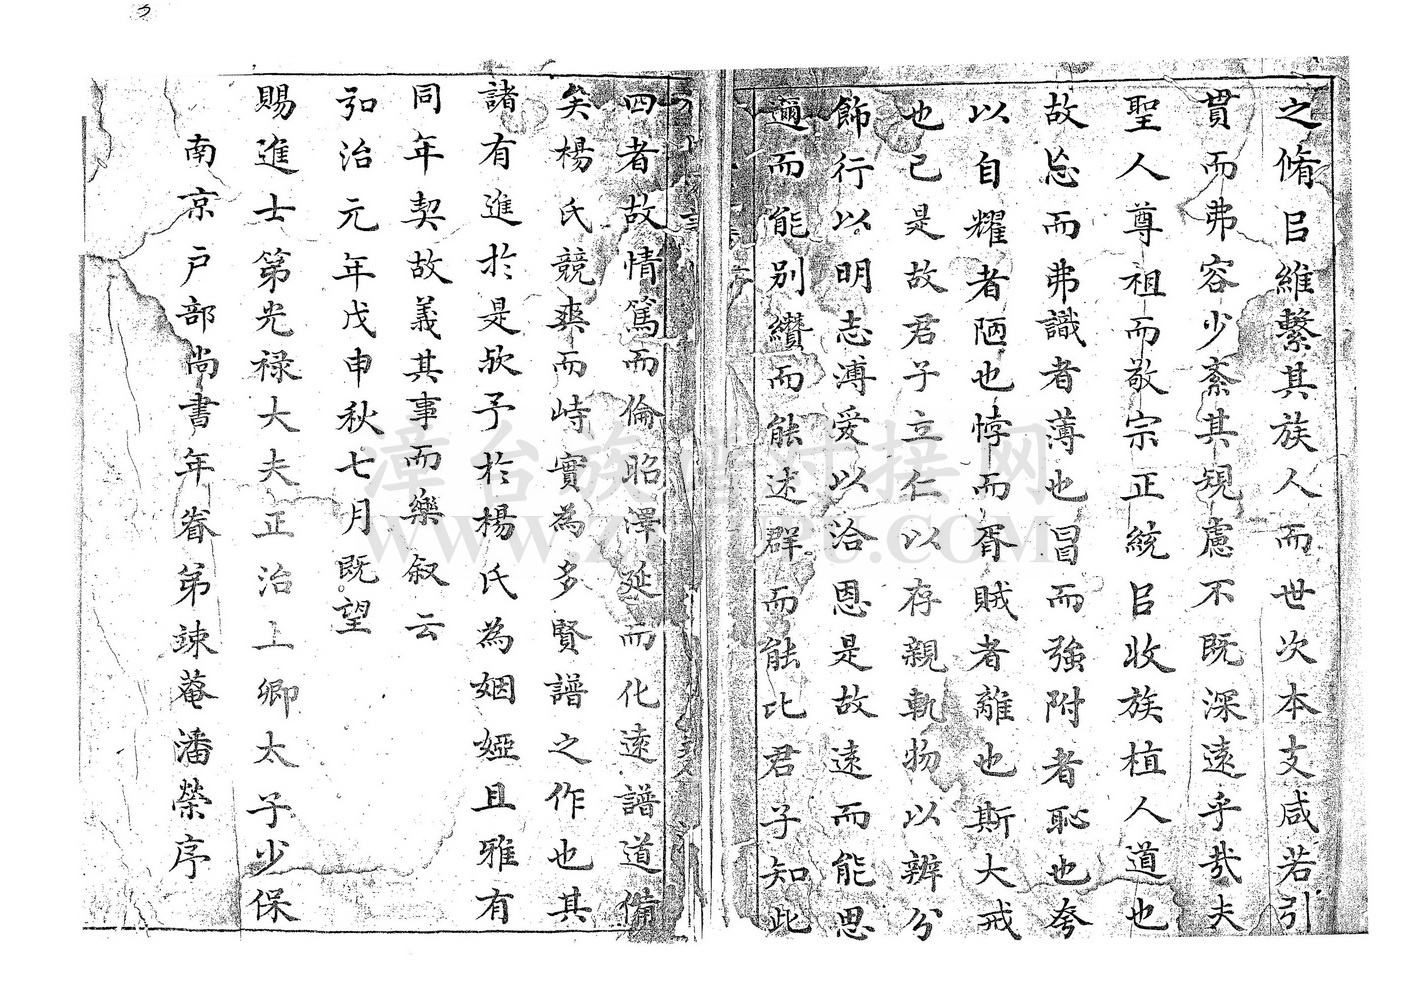 之脩㠯維繫其族人而世次本支咸若引
貫而弗容少紊其規慮不既深遠乎哉夫
聖人尊祖而敬宗正統㠯收族植人道也
故忘而弗識者薄也冒而強附者恥也夸
以自耀者陋也悖而胥賊者離也斯大戒
也已是故君子立仁以存親軌物以辨分
飾行以明志溥愛以洽恩是故遠而能思
邇而能別纘而能述群而能比君子知此
四者故情篤而倫昭澤延而化遠譜道備
矣楊氏競爽而峙實為多賢譜之作也其
諸有進於是欤予於楊氏為姻婭且雅有
同年契故義其事而樂叙云
弘治元年戊申秋七月既望
賜進士第光禄大夫正治上卿太子少保
南京戸部尚書年眷弟竦菴潘榮序
漳台族谱对接网